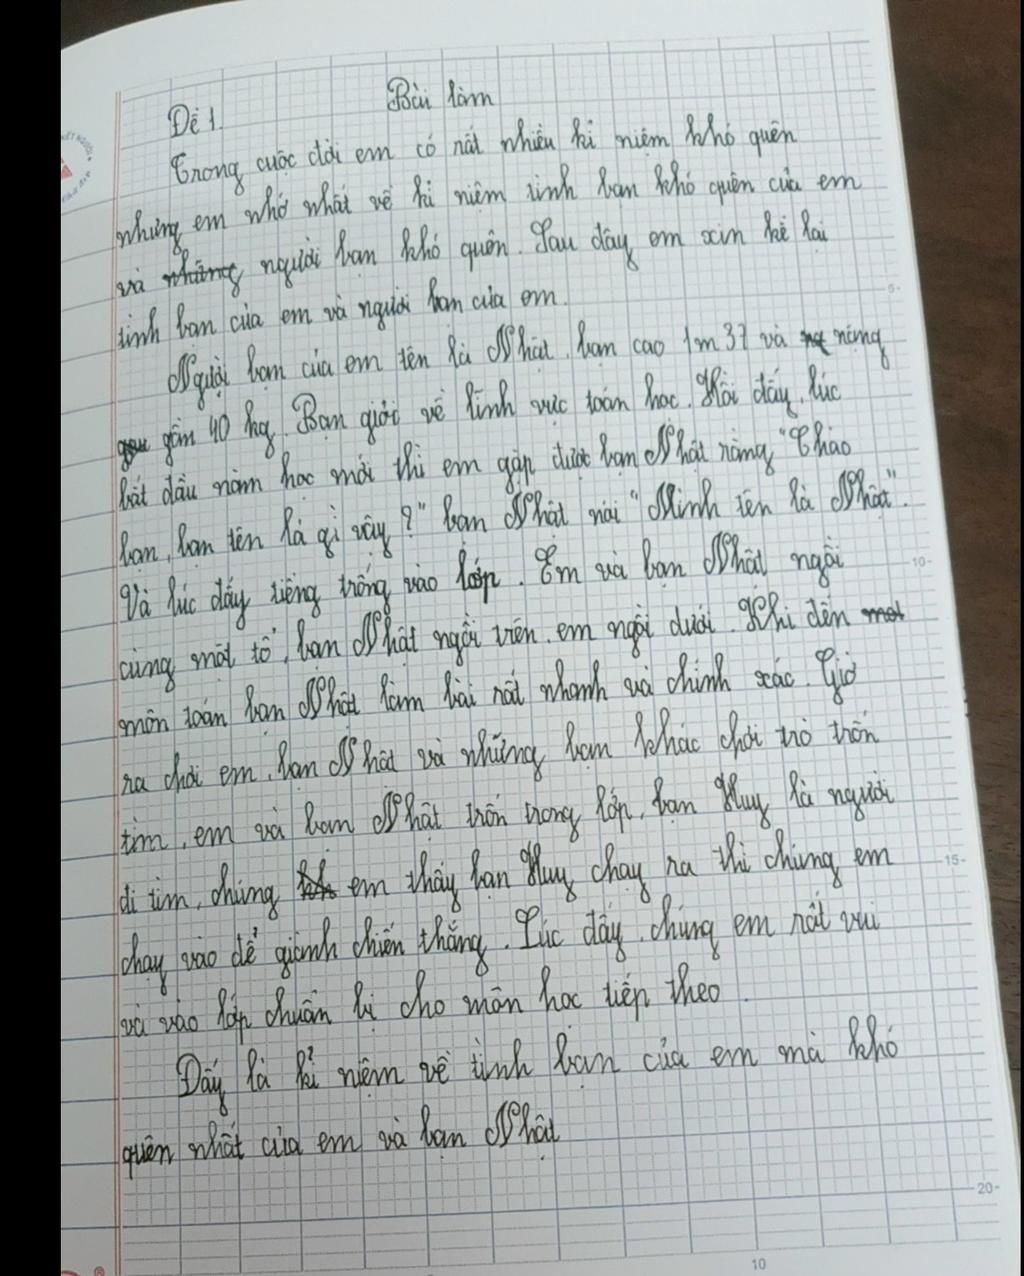 Đề 1. Bài làm
Trong cuộc đời em có rất nhiều kỉ niệm khó quên
nhưng em nhớ nhất về kỉ niệm tình bạn khó quên của em
và những người bạn khó quên. Sau đây em xin kể lại
tình bạn của em và người bạn của em.
Người bạn của em tên là Nhật, bạn cao 1m37 và nặng
gần 40 kg. Bạn giỏi về lĩnh vực toán học. Hồi đấy, lúc
bắt đầu năm học mới thì em gặp được bạn Nhật rằng "Chào
bạn, bạn tên là gì vậy?" bạn Nhật nói "Mình tên là Nhật".
Và lúc đấy tiếng trống vào lớp. Em và bạn Nhật ngồi
cùng một tổ, bạn Nhật ngồi trên, em ngồi dưới. Khi đến
môn toán bạn Nhật làm bài rất nhanh và chính xác. Giờ
ra chơi em, bạn Nhật và những bạn khác chơi trò trốn
tìm, em và bạn Nhật trốn trong lớp, bạn Huy là người
đi tìm, chúng em thấy bạn Huy chạy ra thì chúng em
chạy vào để giành chiến thắng. Lúc đấy, chúng em rất vui
và vào lớp chuẩn bị cho môn học tiếp theo.
Đấy là kỉ niệm về tình bạn của em mà khó
quên nhất của em và bạn Nhật.
5-
10-
15-
20-
10